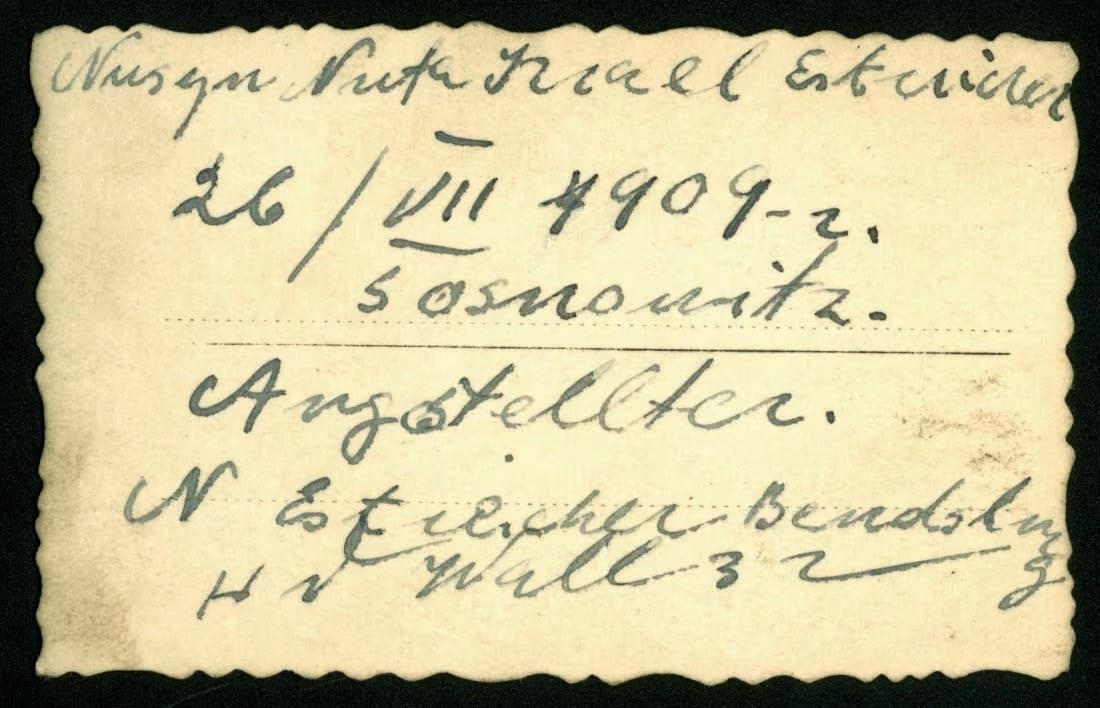 Nusyn Nuta Israel Estreicher
26 / VII 1909-r.
Sosnowitz.
Angstellter.
N Estreicher Bendsburg
Wall 32